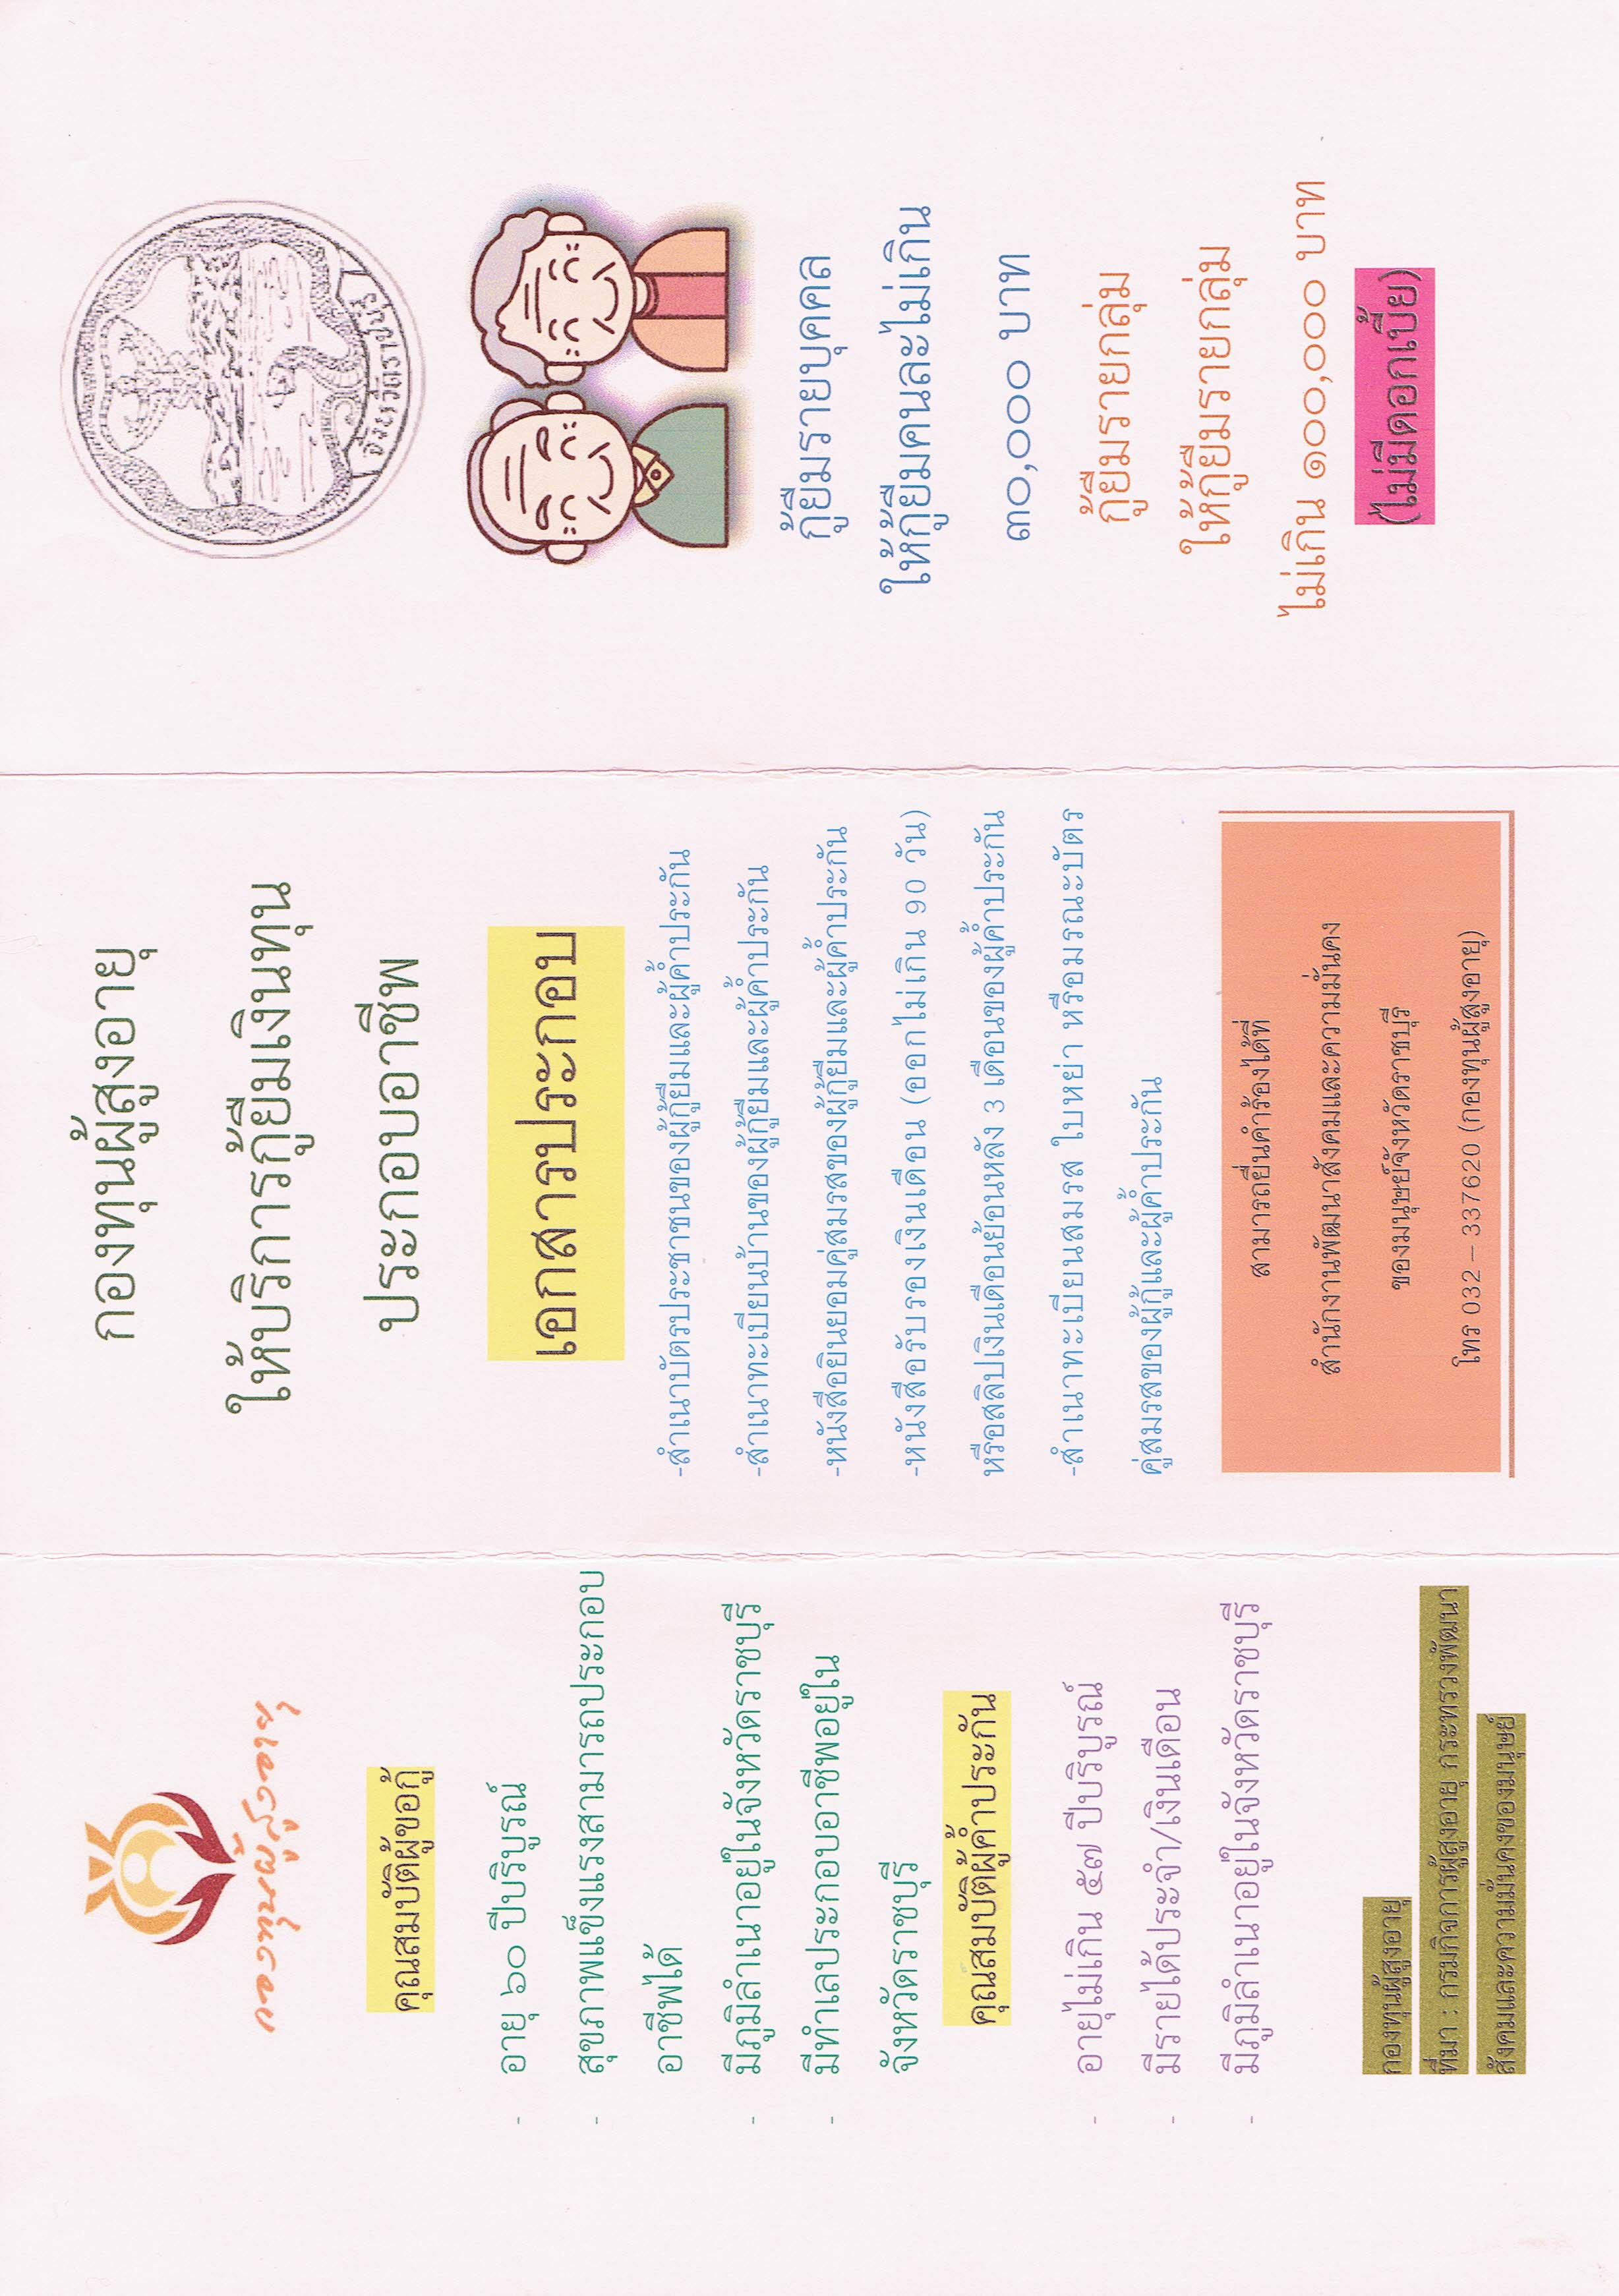 กองทุนผู้สูงอายุ
คุณสมบัติผู้ขอกู้
- อายุ ๖๐ ปีบริบูรณ์
- สุขภาพแข็งแรงสามารถประกอบ
อาชีพได้
- มีภูมิลำเนาอยู่ในจังหวัดราชบุรี
- มีทำเลประกอบอาชีพอยู่ใน
จังหวัดราชบุรี
คุณสมบัติผู้ค้ำประกัน
- อายุไม่เกิน ๕๗ ปีบริบูรณ์
- มีรายได้ประจำ/เงินเดือน
- มีภูมิลำเนาอยู่ในจังหวัดราชบุรี
กองทุนผู้สูงอายุ
ที่มา : กรมกิจการผู้สูงอายุ กระทรวงพัฒนา
สังคมและความมั่นคงของมนุษย์
กองทุนผู้สูงอายุ
ให้บริการกู้ยืมเงินทุน
ประกอบอาชีพ
เอกสารประกอบ
-สำเนาบัตรประชาชนของผู้กู้ยืมและผู้ค้ำประกัน
-สำเนาทะเบียนบ้านของผู้กู้ยืมและผู้ค้ำประกัน
-หนังสือยินยอมคู่สมรสของผู้กู้ยืมและผู้ค้ำประกัน
-หนังสือรับรองเงินเดือน (ออกไม่เกิน 90 วัน)
หรือสลิปเงินเดือนย้อนหลัง 3 เดือนของผู้ค้ำประกัน
-สำเนาทะเบียนสมรส ใบหย่า หรือมรณะบัตร
คู่สมรสของผู้กู้และผู้ค้ำประกัน
สามารถยื่นคำร้องได้ที่
สำนักงานพัฒนาสังคมและความมั่นคง
ของมนุษย์จังหวัดราชบุรี
โทร 032 – 337620 (กองทุนผู้สูงอายุ)
จังหวัดราชบุรี
กู้ยืมรายบุคคล
ให้กู้ยืมคนละไม่เกิน
๓๐,๐๐๐ บาท
กู้ยืมรายกลุ่ม
ให้กู้ยืมรายกลุ่ม
ไม่เกิน ๑๐๐,๐๐๐ บาท
(ไม่มีดอกเบี้ย)